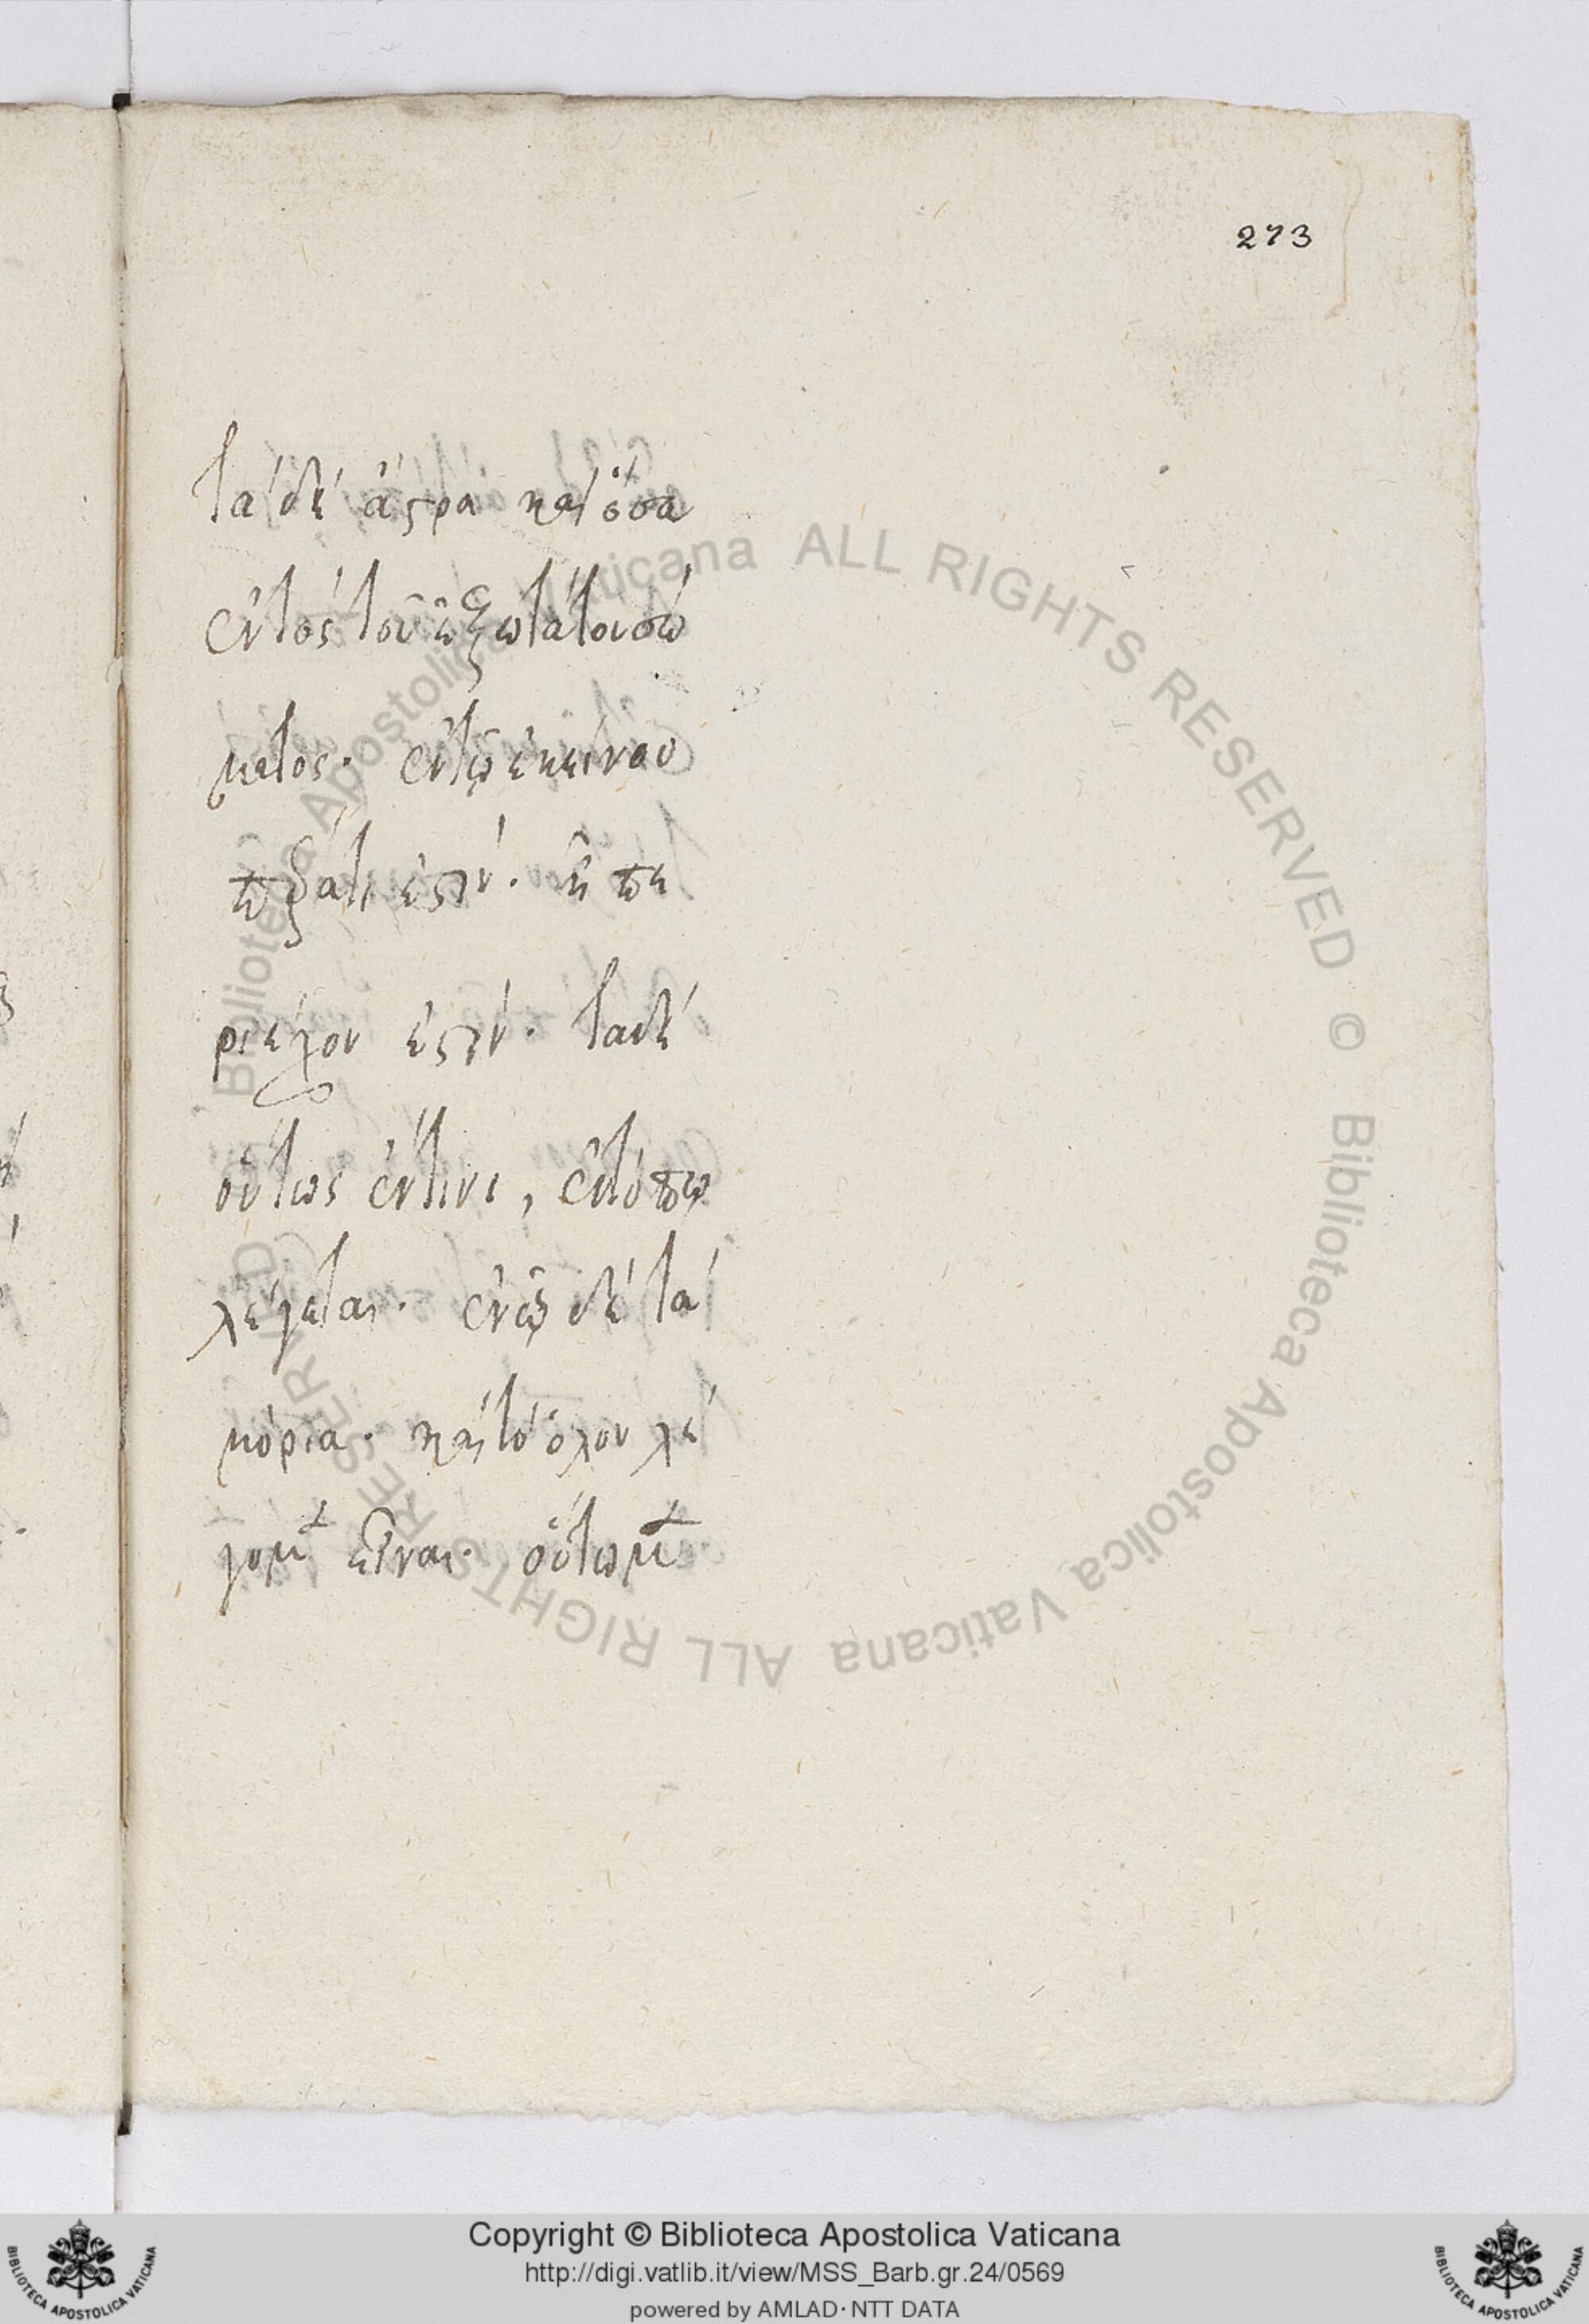 273
τὰ δὲ ἄστρα καὶ ὅσα
ἐντὸς τοῦ ἐξωτάτου σώ
ματος. ἐν τῷ ἐκείνου
πέρατι ἐστίν. ἢ πε
ριέχον ἐστίν. τὰ δὲ
οὕτως ἔν τινι, ἐν τόπω
λέγεται. ἐν ᾧ δὲ τὰ
μόρια. καὶ τὸ ὅλον λέ
γομεν εἶναι. οὕτω μεν
Biblioteca Apostolica Vaticana ALL RIGHTS RESERVED ©
Biblioteca Apostolica Vaticana ALL RIGHTS RESERVED ©
Copyright © Biblioteca Apostolica Vaticana
http://digi.vatlib.it/view/MSS_Barb.gr.24/0569
powered by AMLAD · NTT DATA
BIBLIOTECA APOSTOLICA VATICANA
BIBLIOTECA APOSTOLICA VATICANA